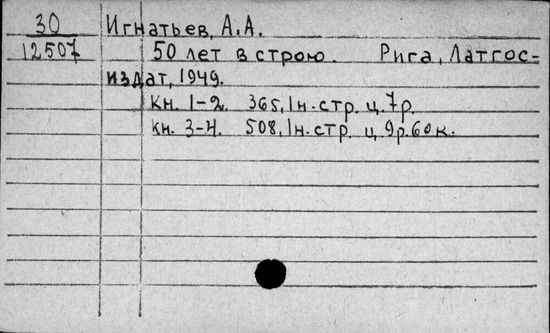 30 Игнатьев, А.А.
12507 50 лет в строю. Рига, Латгос-
издат, 1949.
Кн. 1-2. 365, 1н.стр. ц. 7р.
кн. 3-4. 508, 1н.стр. ц. 9р.60к.